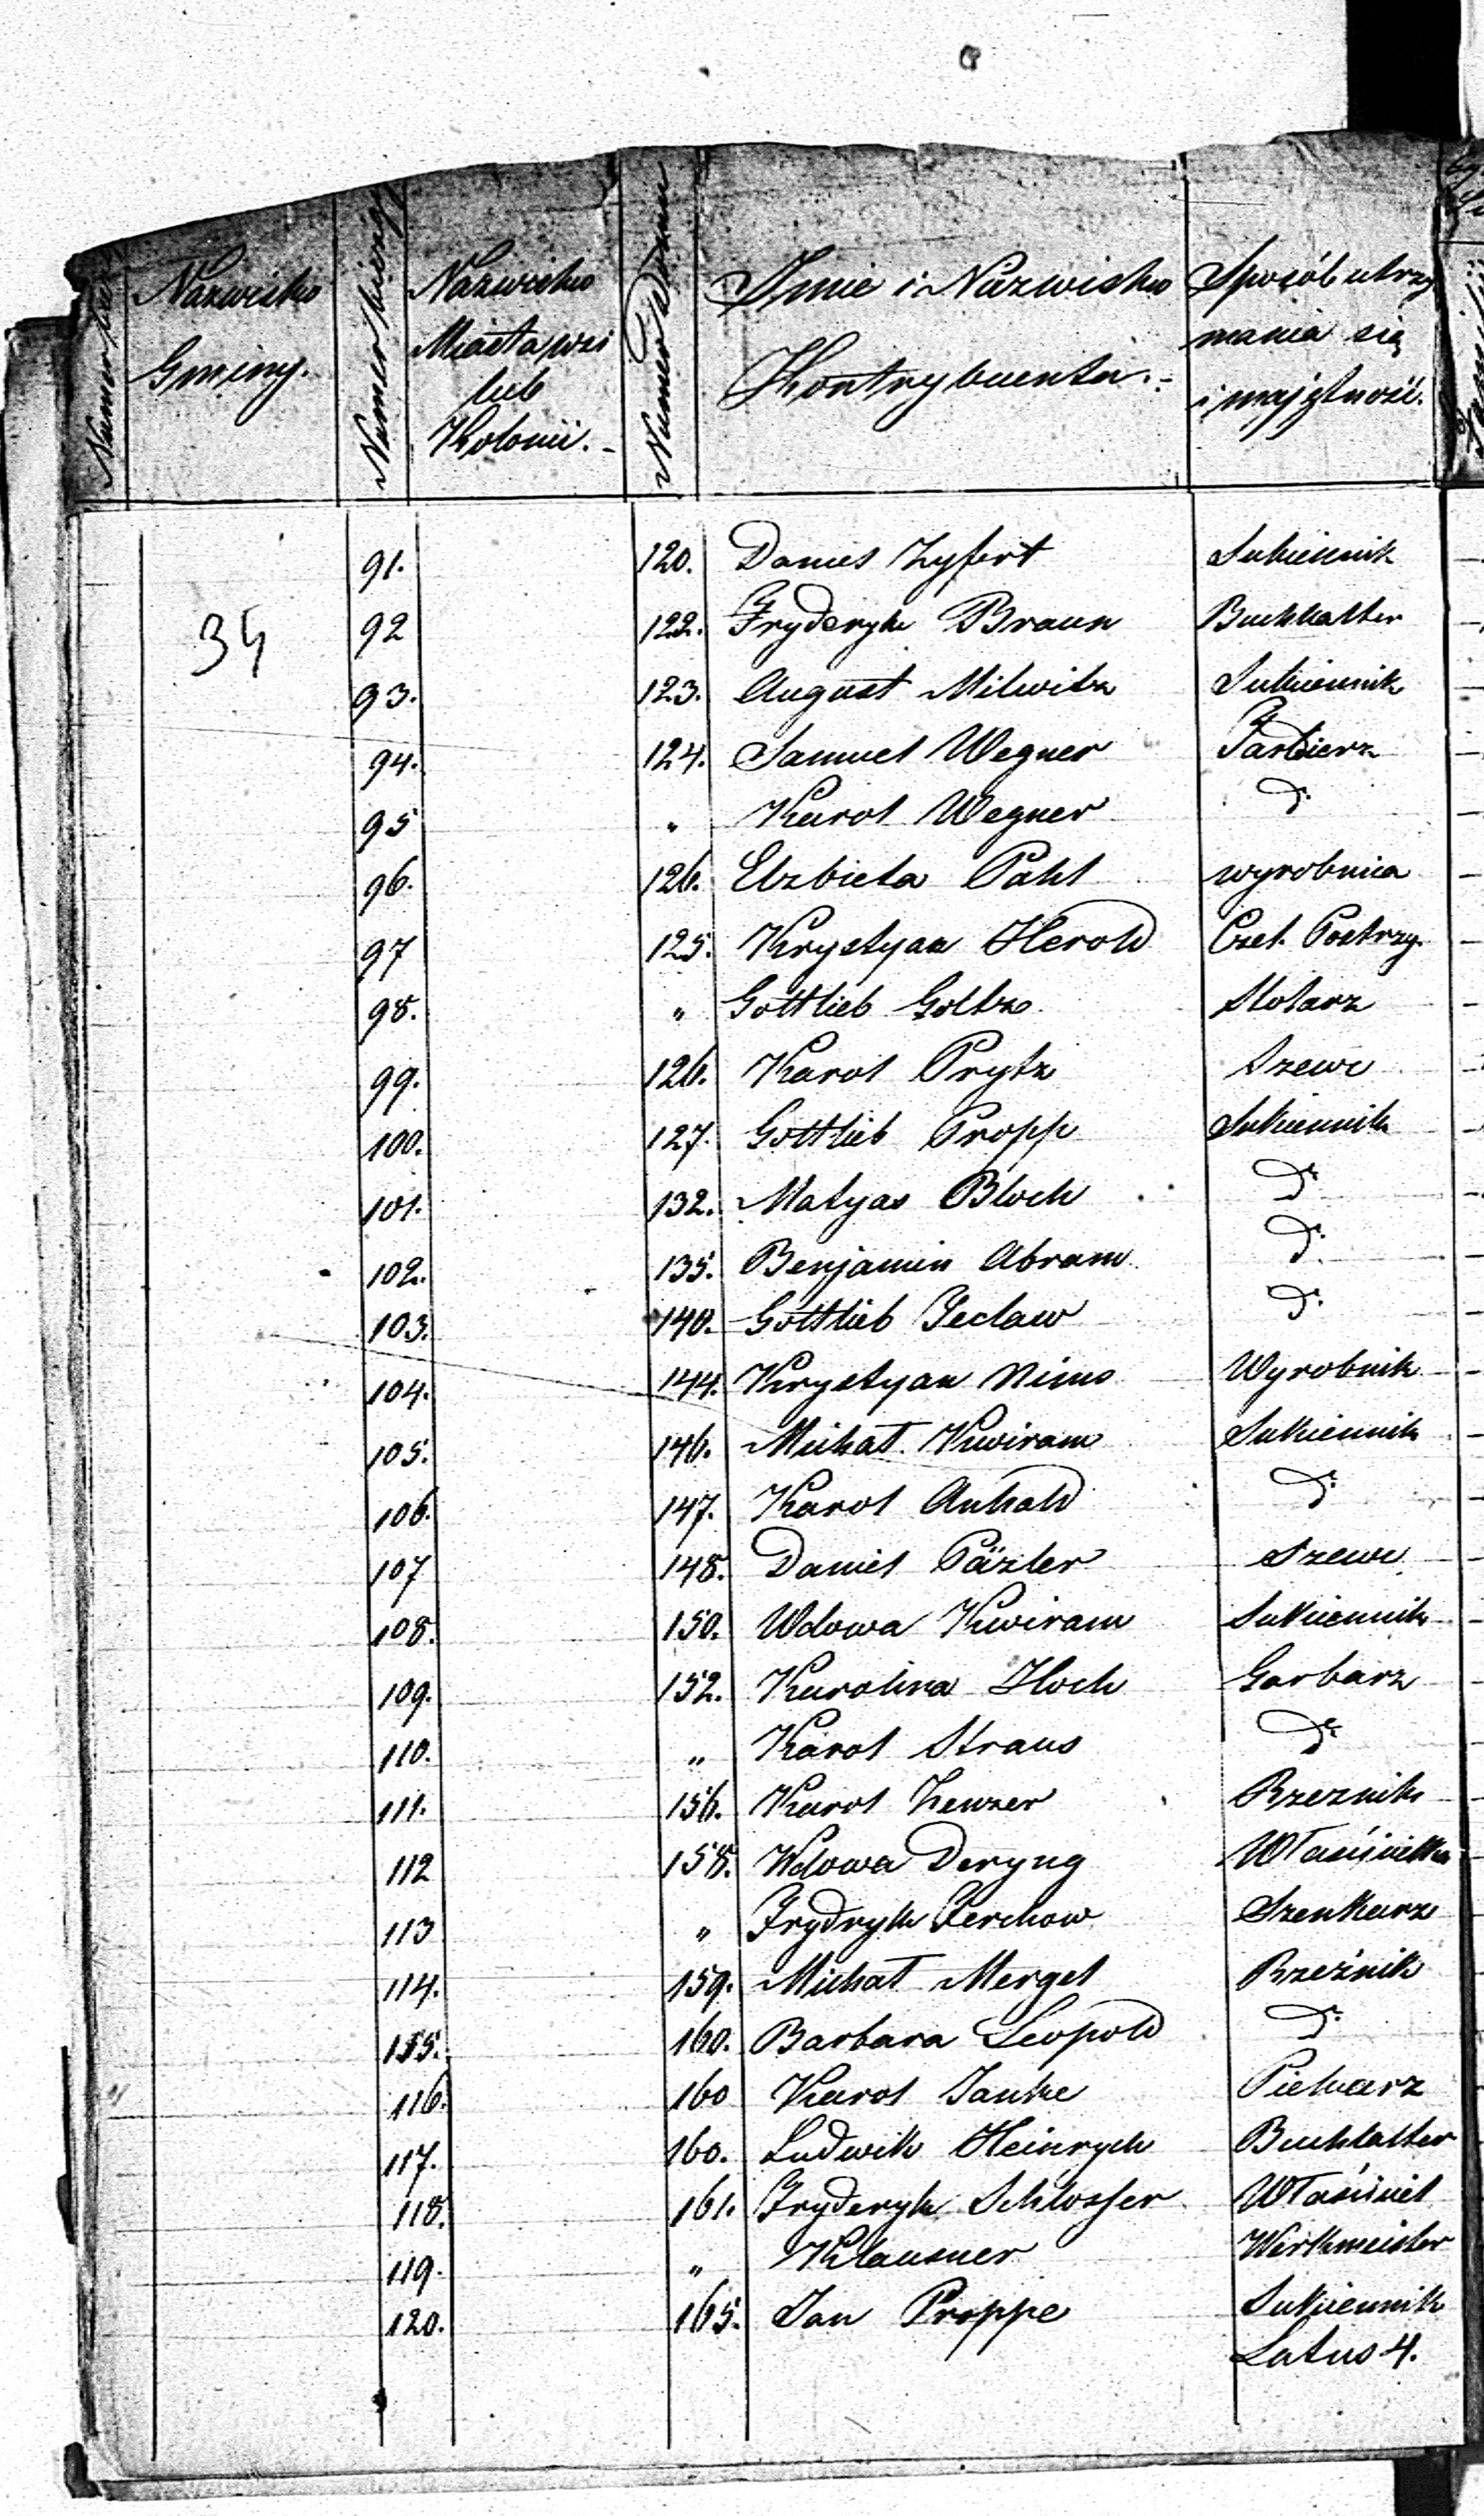 Nazwisko Gminy.
Numer bieżący
Nazwisko Miasta, wsi lub Kolonii.-
Numer Domu
Imie i Nazwisko Kontrybuenta.-
Sposób utrzymania się i majętność.
34
91. 120. Daniel Zyfert Sukiennik
92 122. Fryderyk Braun Buchhalter
93. 123. August Milwitz Sukiennik
94. 124. Samuel Wegner Farbierz
95 " Karol Wegner d°
96. 126. Elzbieta Pahl wyrobnica
97 125. Krystyan Herold Czel. Postrzy.
98. " Gottlieb Goltz Stolarz
99. 126. Karol Prytz Szewc
100. 127. Gottlieb Propp Sukiennik
101. 132. Matyas Bloch d°
102. 135. Benjamin Abram d°
103. 140. Gottlieb Jeclaw d°
104. 144. Krystyan Nims Wyrobnik
105. 146. Michał Kwiram Sukiennik
106. 147. Karol Anhald d°
107 148. Daniel Päzler Szewc
108. 150. Wdowa Kwiram Sukiennik
109. 152. Karolina Hoch Garbarz
110. " Karol Straus d°
111. 156. Karol Zewzer Rzeznik
112 158. Wdowa Deryng Właścicielka
113 " Frydryk Ferchow Szenkarz
114. 159. Michał Mergel Rzeźnik
115. 160. Barbara Leopold d°
116. 160 Karol Janke Piekarz
117. 160. Ludwik Heinrych Buchhalter
118. 161. Fryderyk Schlosser Właściciel
119. " Klausner Werkmeister
120. 165. Jan Proppe Sukiennik
Latus 4.